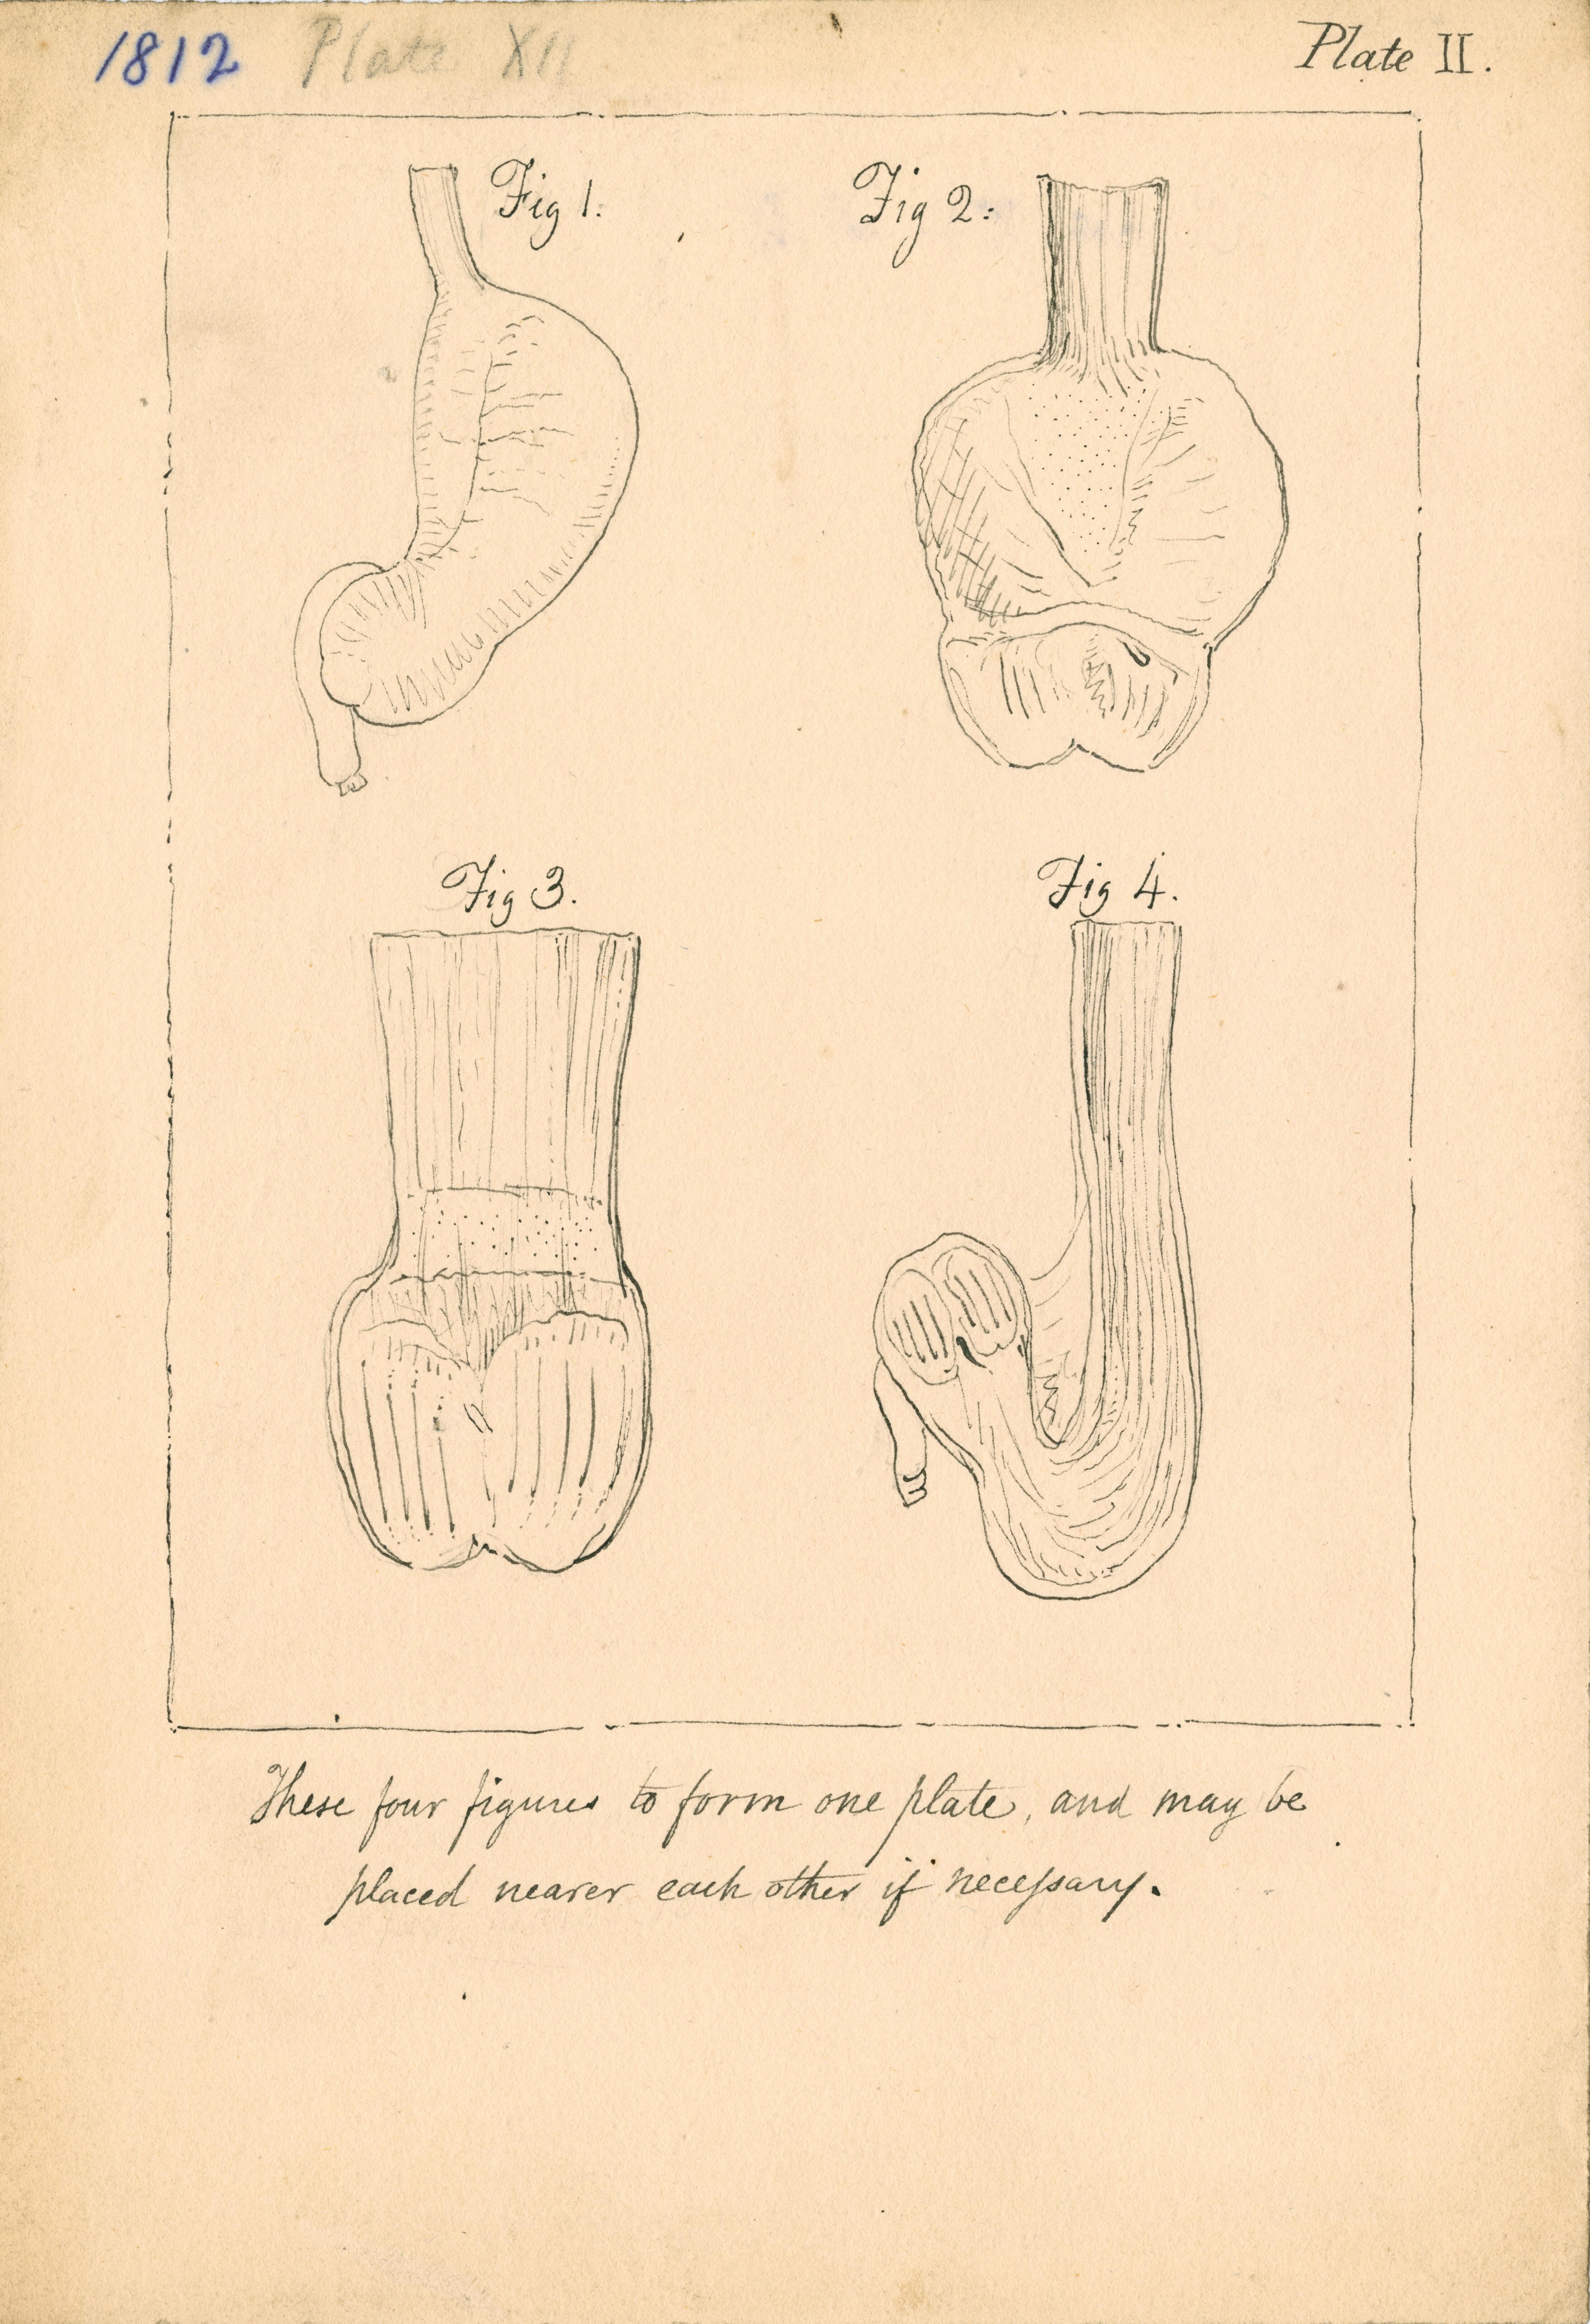 1812 Plate XII Plate II.
Fig 1. Fig 2:
Fig 3. Fig 4.
These four figures to form one plate, and may be
placed nearer each other if neceſsary.